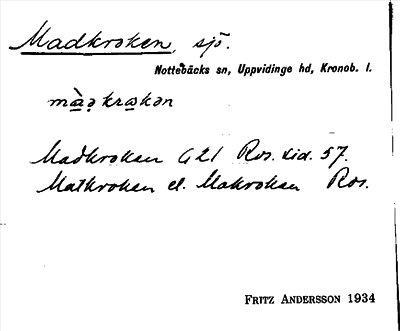 Madkroken, sjö.
Nottebäcks sn, Uppvidinge hd, Kronob. l.
màḁkrakən
Madkroken G21 Ros. sid. 57.
Matkroken el. Makroken Ros.
FRITZ ANDERSSON 1934